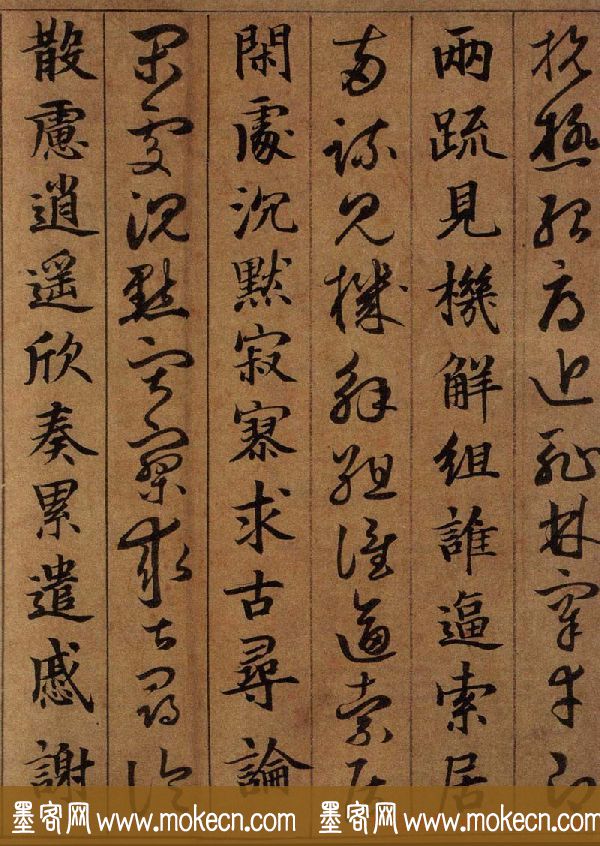 抗極殆辱近恥林睾幸即
兩疏見機解組誰逼索居
兩疏見機解組誰逼索居
閑處沉默寂寥求古尋論
閑處沉默寂寥求古尋論
散慮逍遙欣奏累遣慼謝
墨客网 www.mokecn.com 墨客网 www.mokecn.com